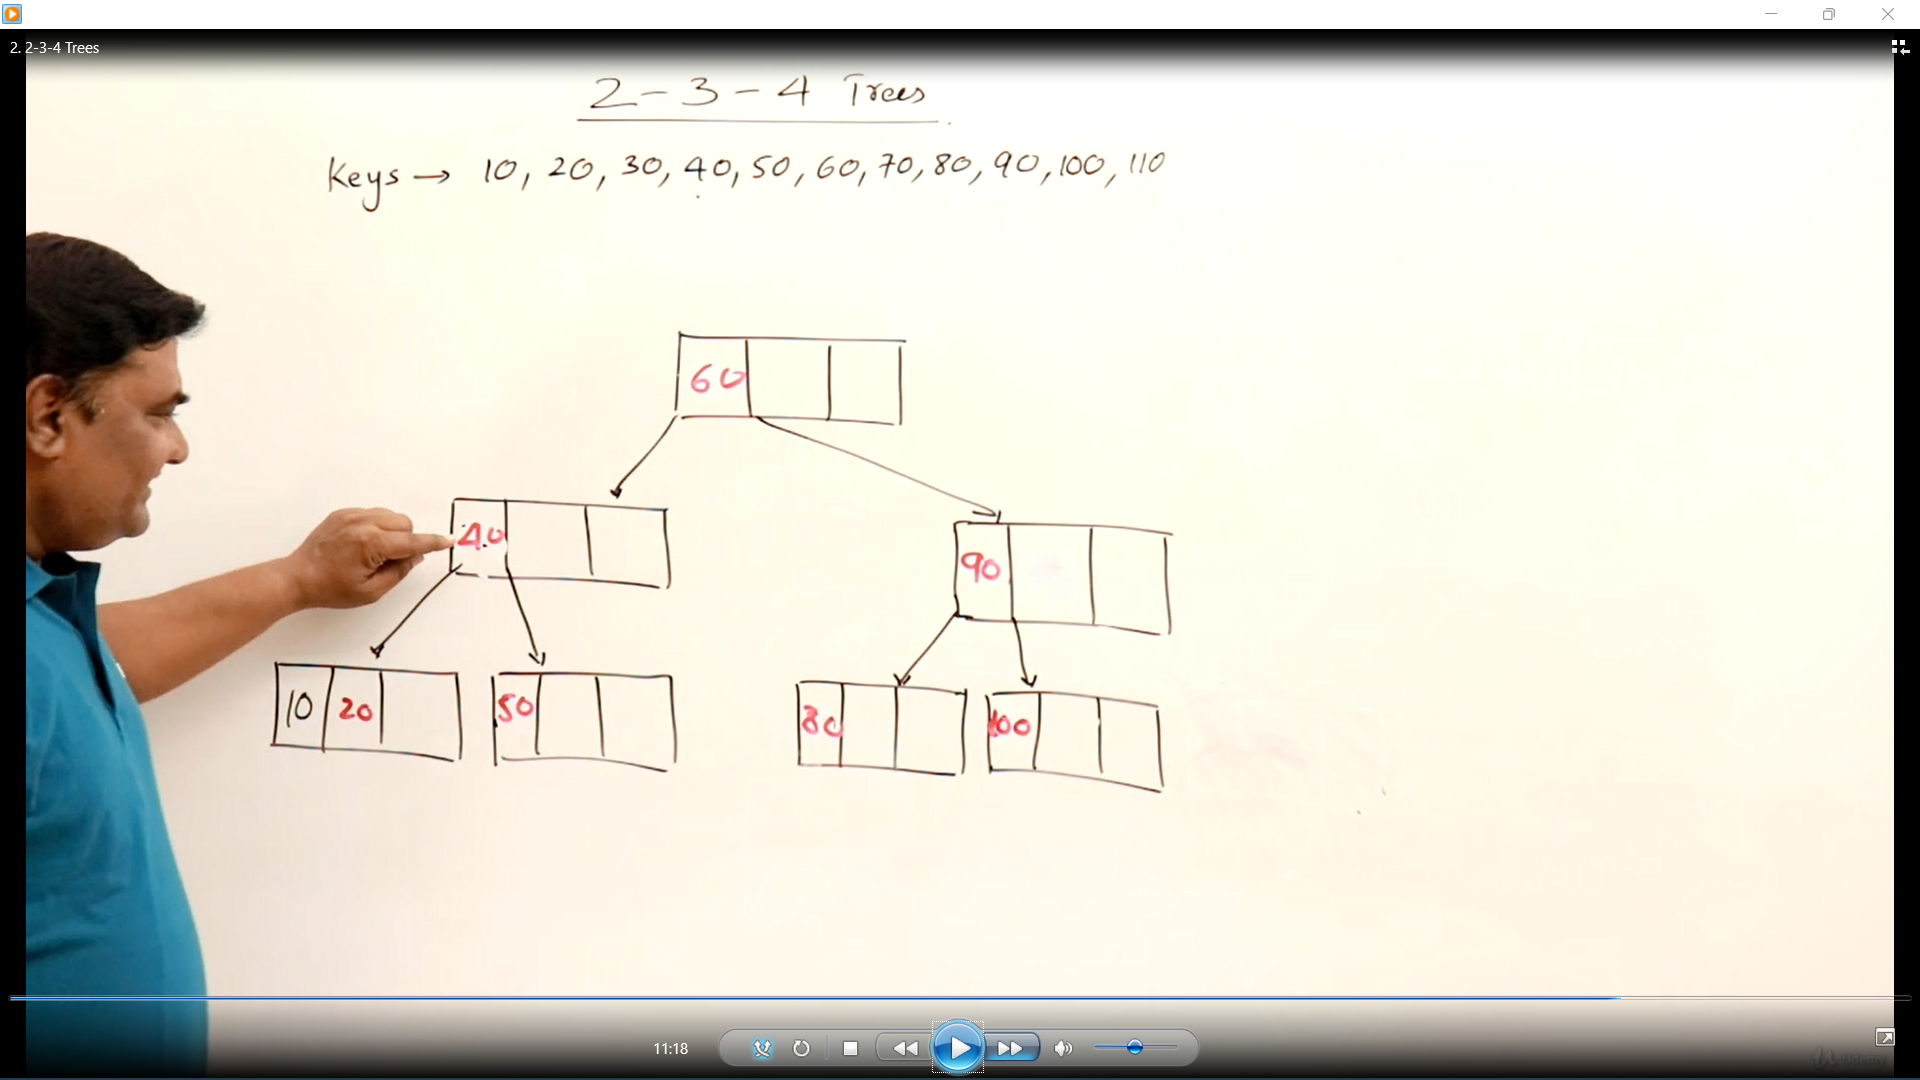 2. 2-3-4 Trees
2-3-4 Trees
Keys → 10, 20, 30, 40, 50, 60, 70, 80, 90, 100, 110
60
40
90
10 20
50
80
100
11:18
Udemy